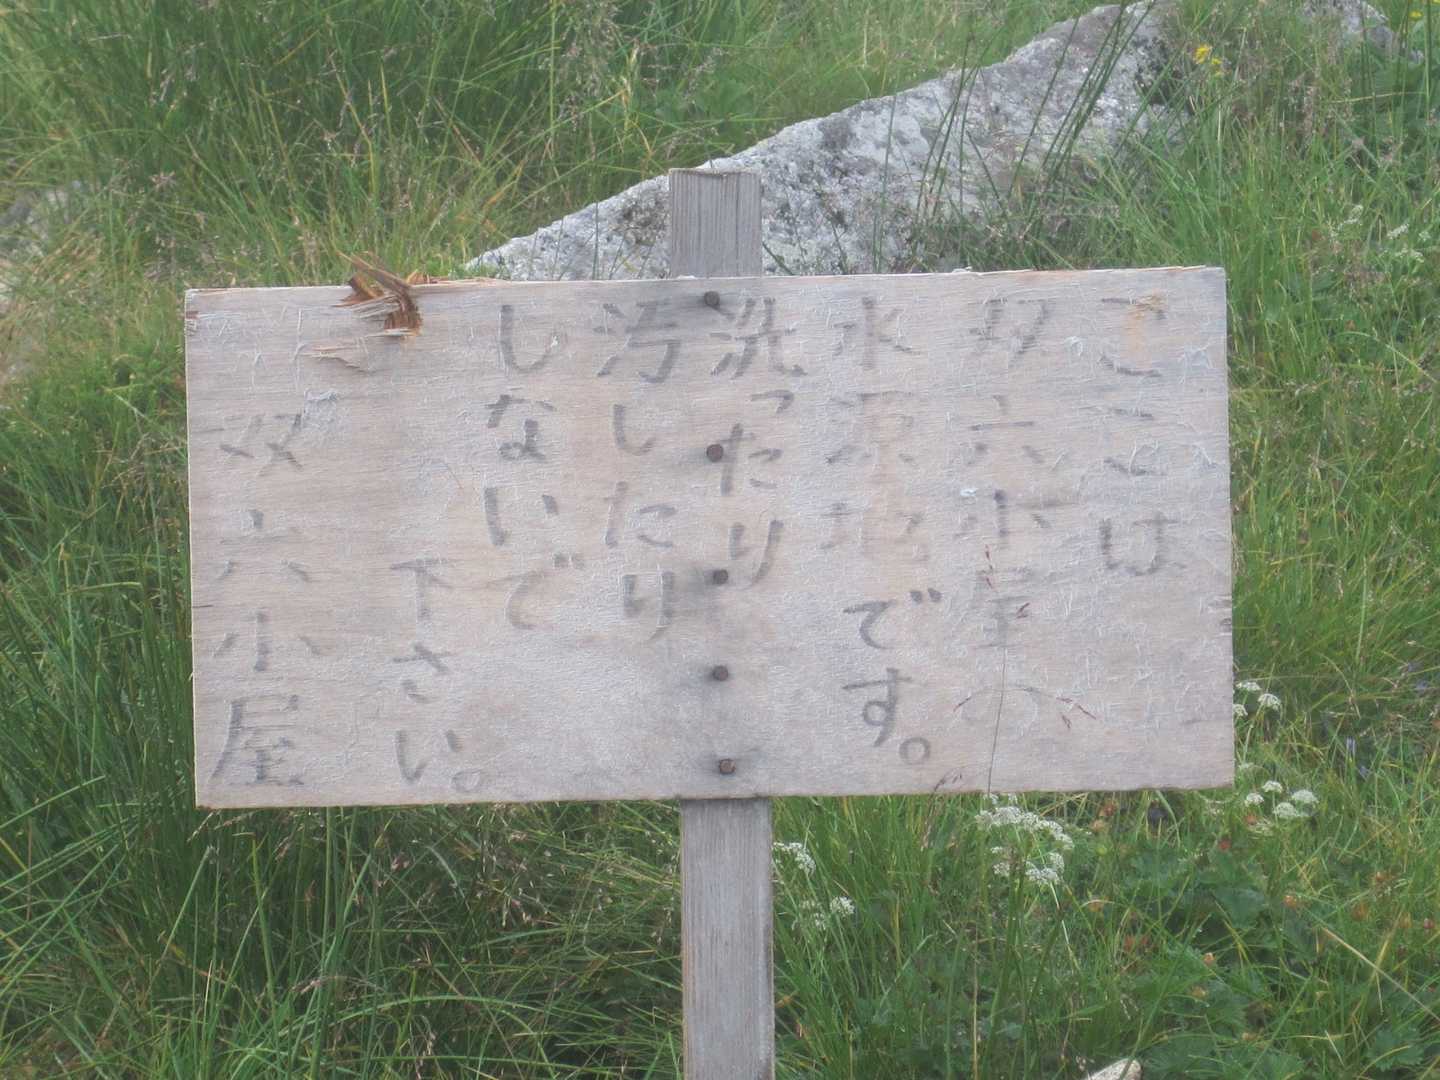 ここは
双六小屋の
水源地です。
洗ったり
汚したり
しないで
下さい。
双六小屋